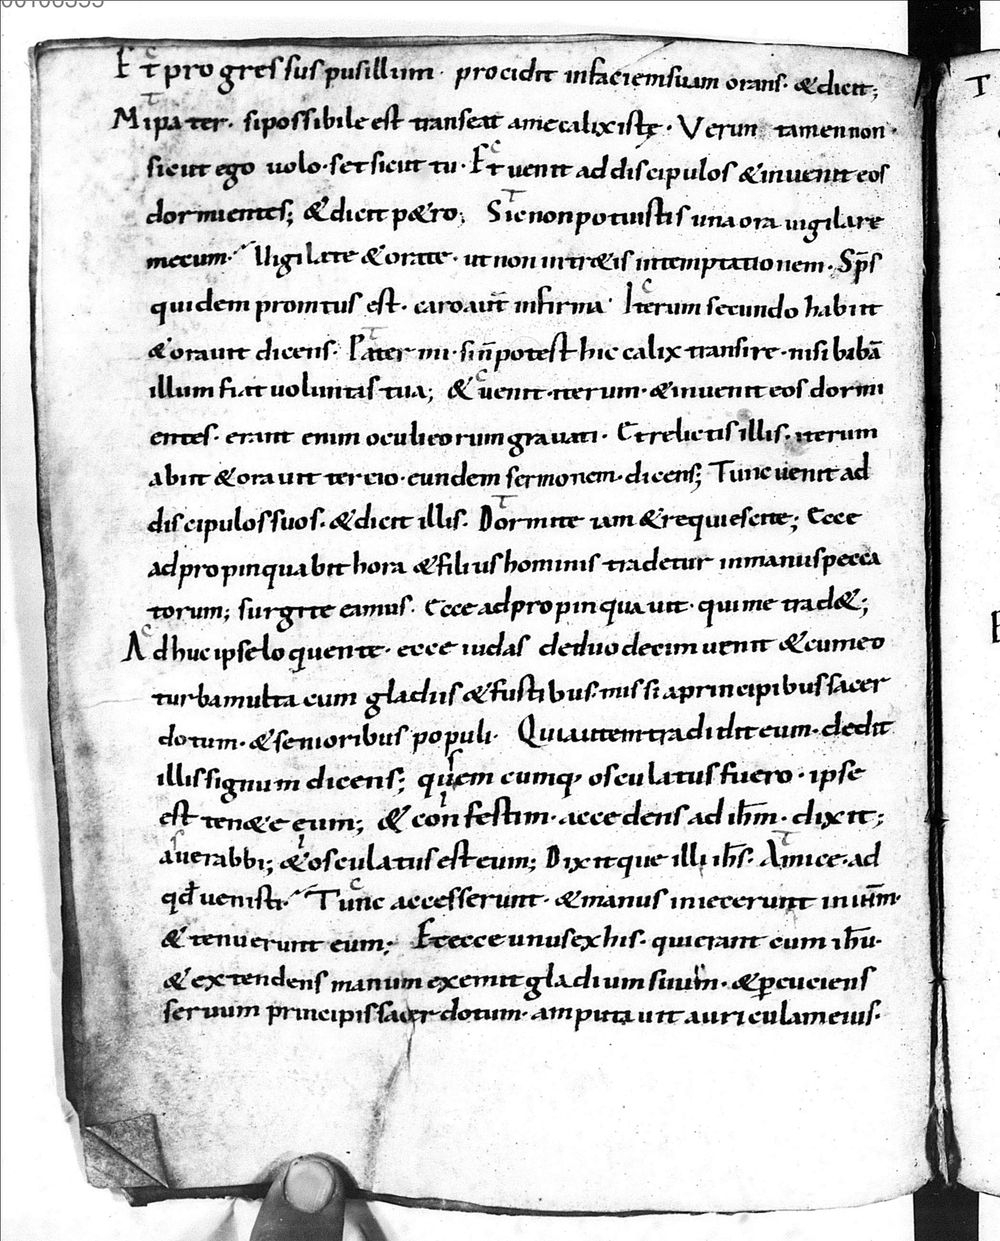 Et progressus pusillum · procidit infaciemsuam orans · & dicit;
Mipater · sipossibile est transeat amecalixistę · Verun tamennon ·
sicut ego uolo · set sicut tu · Et uenit addiscipulos &inuenit eos
dormientes; &dicit p&ro; Sicnonpotuistis unaora uigilare
mecum · Uigilate &orate · ut non intr&is intemptationem · Sp̄s
quidem promtus est · caro aut̄ infirma · Iterum secundo habiit
&orauit dicens · Pater mi · sin̄potest hic calix transire · nisi bibā
illum fiat uoluntas tua; & uenit · iterum · &inuenit eos dormi
entes · erant enim oculieorumgrauati · Etrelictis illis · iterum
abiit &orauit tercio · eundem sermonem · dicens; Tunc uenit ad
discipulossuos · &dicit illis · Dormite iam &requiescite; Ecce
adpropinquabit hora &filius hominis tradetur inmanuspecca
torum; surgite eamus · Ecce adpropinquauit · quime trad&;
Adhuc ipseloquente · ecce iudas deduodecim uenit &cumeo
turbamulta cum gladiis &fustibus · missi aprincipibussacer
dotum · &senioribus populi · Quiautemtradidit eum · dedit
illissignum dicens; quem cumq; osculatusfuero · ipse
est ten&e eum; & confestim · accedens ad ih̄m · dixit;
auerabbi; &osculatus est eum; Dixitque illi ih̄s · Amice · ad
qd̄ uenisti · Tunc accesserunt · &manus iniecerunt in ih̄m ·
& tenuerunt eum; Etecce unusexhis · quierant cum ih̄u ·
& extendens manum exemit gladium suum · &p̱cuciens
seruum principissacerdotum · amputauit auriculameius ·